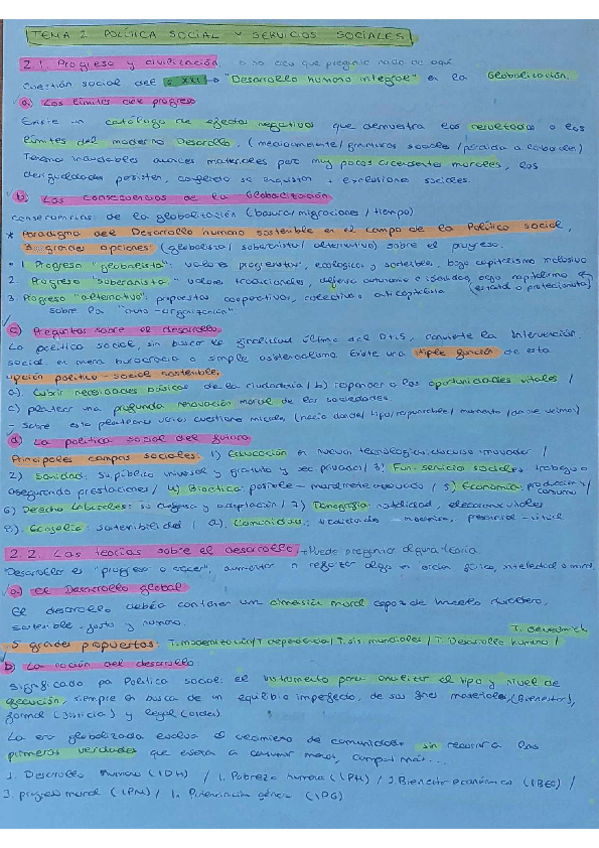 TEMA 2 POLÍTICA SOCIAL Y SERVICIOS SOCIALES
2.1. Progreso y civilización no creo que pregunte nada de aquí
Cuestión social del s. XXI → "Desarrollo humano integral" en la Globalización.
a) Los límites del progreso
Existe un catálogo de efectos negativos que demuestra los resultados o los
límites del moderno Desarrollo. (medioambiente / sociales / pérdida
avances materiales pero muy pocos morales, las
desigualdades persisten, exclusiones sociales.
b) Las consecuencias de la Globalización
de la globalización (basura / migraciones / tiempo)
* Paradigma del Desarrollo humano sostenible en el campo de la Política social,
3 grandes opciones: (globalista / soberanista / alternativo) sobre el progreso.
1. Progreso "globalista": valores progresistas, ecológicos y sostenibles, bajo capitalismo inclusivo
2. Progreso soberanista: valores tradicionales, defensa identidad, bajo capitalismo
(estatal o proteccionista)
3. Progreso "alternativo": propuestas cooperativas, colectivas, anticapitalista
sobre la "auto-organización"
c) Preguntas sobre el desarrollo.
La política social, sin buscar la finalidad última del DHS, convierte la Intervención
social en mera burocracia o simple asistencialismo. Existe una triple función de esta
opción político-social sostenible.
a). Cubrir necesidades básicas de la ciudadanía / b) responder a las oportunidades vitales /
c) plantear una profunda renovación moral de las sociedades.
- sobre esto planteamos varias cuestiones
d) La política social del futuro
Principales campos sociales: 1) Educación en nuevas tecnologías, discurso innovador /
2) Sanidad: su público universal y gratuito y sec privados / 3) Fun. servicio sociales, trabajo
asegurando prestaciones / 4) Bioética: posible - moralmente adecuado / 5) Economía: producción /
consumo /
6) Derecho laborales: su defensa y adaptación / 7) Demografía: natalidad,
8). Ecología: sostenibilidad / 9). Comunidad: tradicional - moderna, personal - virtual
2.2. Las teorías sobre el desarrollo → Puede preguntar alguna teoría.
"Desarrollar es "progresar o crecer", aumentar o reforzar algo en orden físico, intelectual o moral.
a) El Desarrollo global
El desarrollo debía contener una dimensión moral capaz de hacerlo duradero,
sostenible, justo y humano.
5 grandes propuestas: T. modernización / T. dependencia / T. sis. mundiales / T. Desarrollo humano /
b) La noción del desarrollo.
Significado pa Política social: el instrumento para analizar el tipo y nivel de
ejecución, siempre en busca de un equilibrio imperfecto, de sus fines materiales (Bienestar),
formal (Justicia) y legal (orden)
La era globalizada evalúa el crecimiento de comunidades sin recurrir a las
primeras verdades que enseña a consumir menos, compartir más...
I. Desarrollo humano (IDH) / I. Pobreza humana (IPH) / I. Bienestar económico (IBES) /
I. progreso moral (IPM) / I. Potenciación género (IPG)